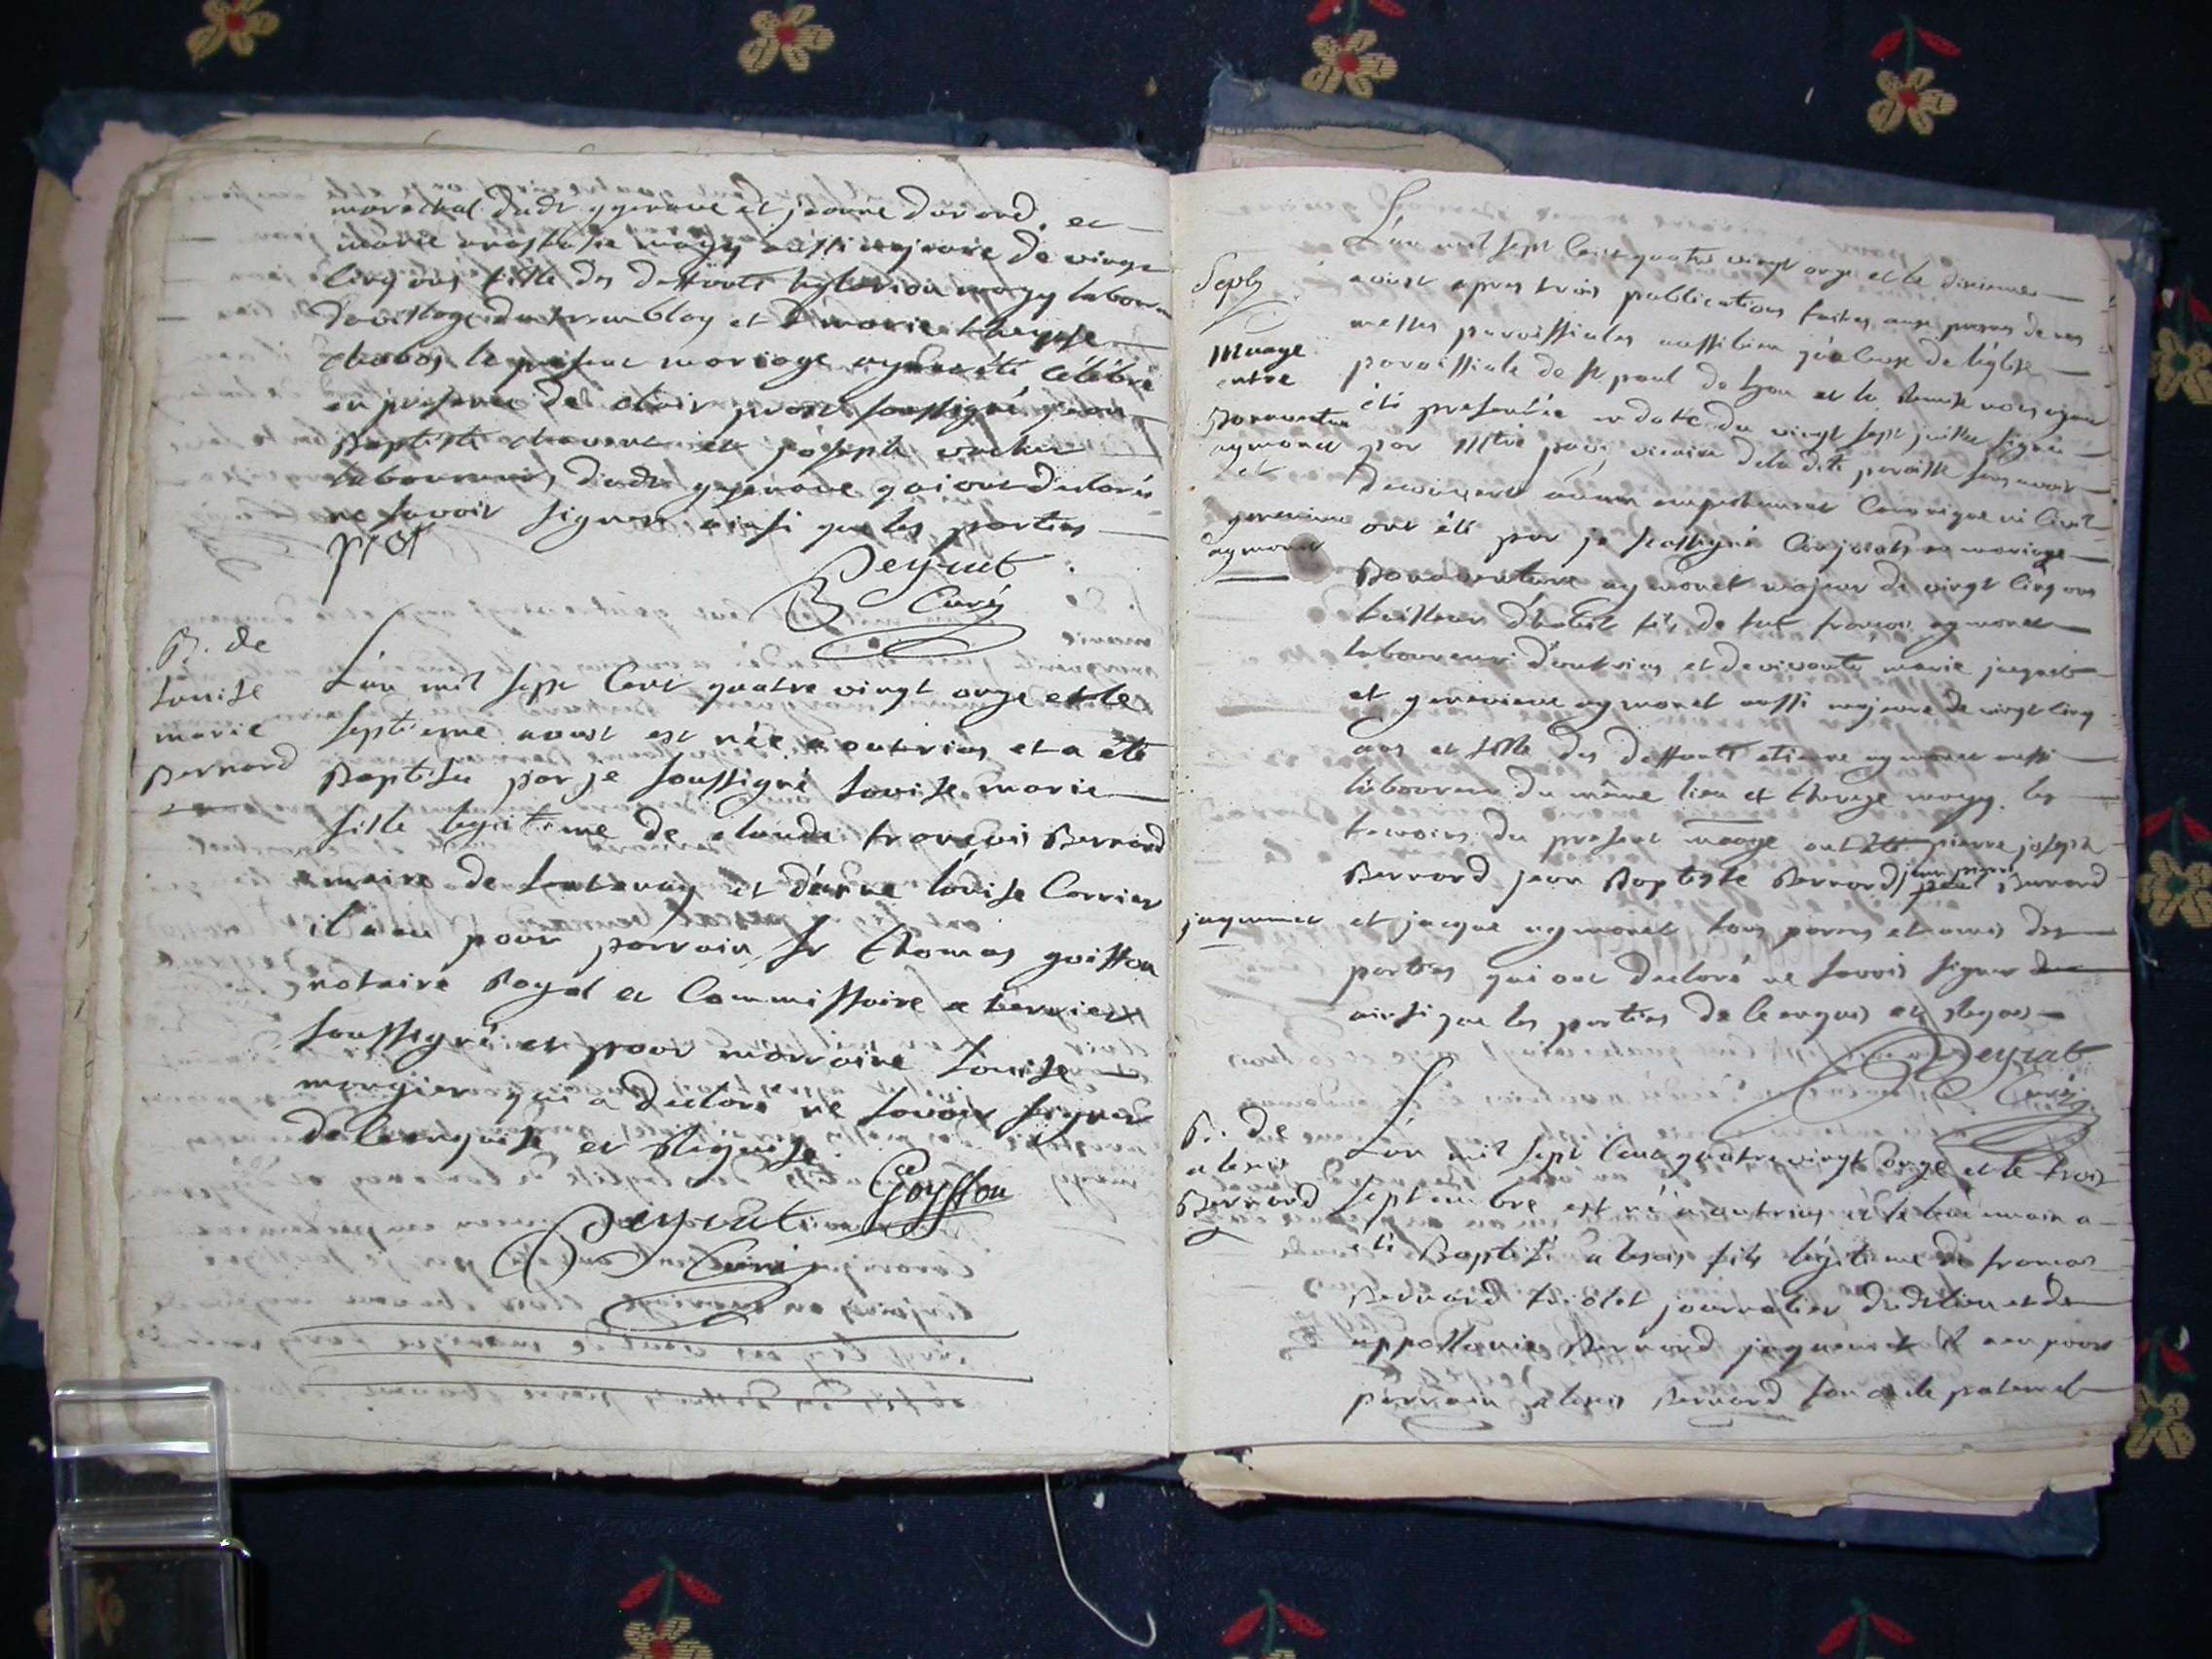 marechal dudt ygerane et jeanne durand. et
marie anasthasie magy aussi majeure de vingt
cinq ans fille des deffunts hylarion magy labour
du village du tremblay et marie therese
chabas le present mariage ayant été célébré
en presence de clair prost soussigné jean
Baptiste chavent et joseph vacher
laboureurs dudt ygerane qui ont declarés
ne savoir signer ainsi que les parties
prost
Peyrat
Curé
B. de
Louise
marie
Bernard
L'an mil sept cent quatre vingt onze et le
septieme aoust est née a outrias et a été
Baptisée par je soussigné Louise marie
fille legitime de claude françois Bernard
maire de et d'anne Louise Carrier
il a eu pour parrain Sr thomas goiffon
notaire Royal et Commissaire a terrier
soussigné et pour marraine Louise
mongier qui a declaré ne savoir signer
de lenquise et Requise
Goyffon
Peyrat
Curé
L'an mil sept cent quatre vingt onze et le dixieme
Septs
aoust apres trois publications faites aux prones de nos
messes paroissiales aussi bien qu'a celles de l'église
Mariage
entre
Bonaventure
aymonet
et
genevieve
aymonet
paroissiale de St paul de Lyon et la Remise nous ayant
été presentée en date du vingt sept juillet signée
par Mtre vicaire de la dite paroisse sans avoir
decouvert aucun empechement Canonique ni Civil
ont été par je soussigné Conjoints en mariage
Bonaventure aymonet majeur de vingt cinq ans
tailleur d'habit fils de fut françois aymonet
laboureur d'outrias et de vivante marie
et genevieve aymonet aussi majeure de vingt cinq
ans et fille des deffunts etienne aymonet aussi
laboureur du même lieu et therese magy. les
temoins du present mage ont été pierre joseph
Bernard jean Baptiste Bernard jean pierre Bernard
jaquemet et jacque aymonet tous parens et amis des
parties qui ont declaré ne savoir signer
ainsi que les parties de lenquis et Requis
Peyrat
Curé
B. de
alexis
Bernard
L'an mil sept cent quatre vingt onze et le trois
septembre est né a outrias et le lendemain a
été Baptisé alexis fils légitime de françois
Bernard triolet journalier dudt lieu et de
appollonie Bernard jaquemet il a eu pour
parrain alexis Bernard son oncle paternel